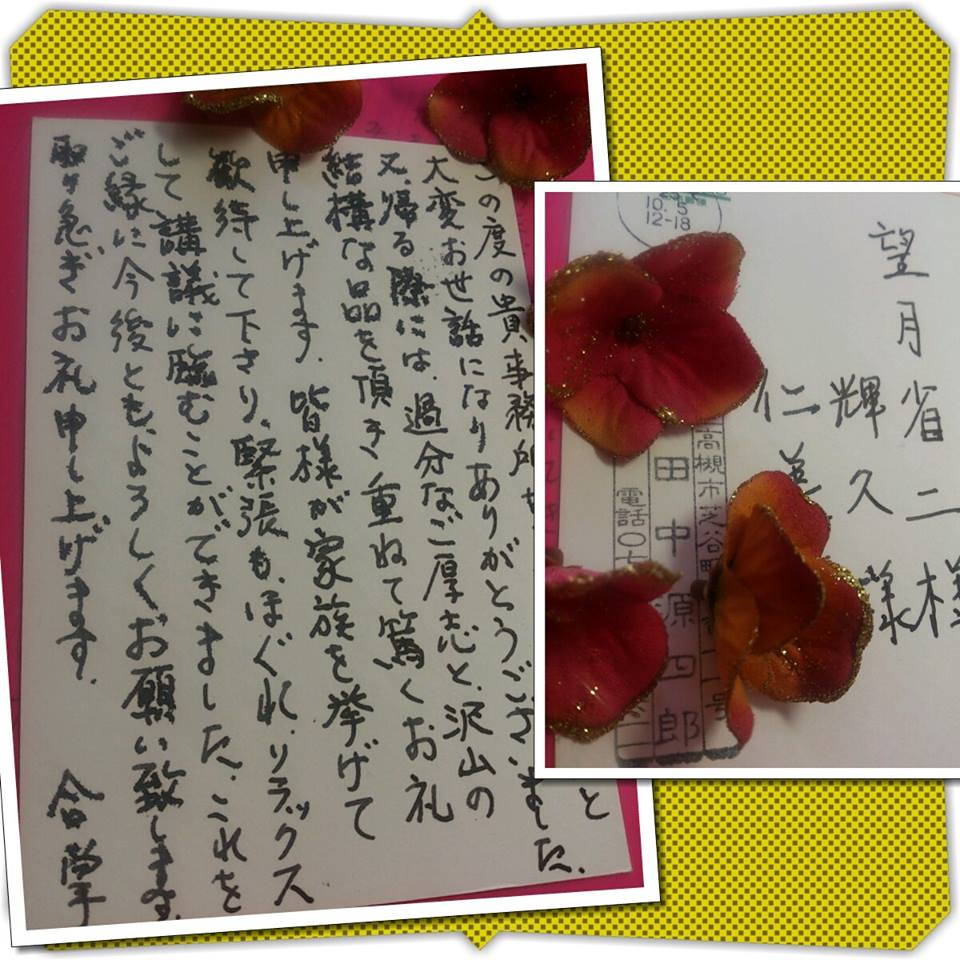 の度の貴事務所
と
大変お世話になりありがとうございました。
又、帰る際には、過分なご厚志と、沢山の
結構な品を頂き重ねて篤くお礼
申し上げます。皆様が家族を挙げて
歓待して下さり、緊張も、ほぐれ、リラックス
して講議に臨むことができました。これを
ご縁に今後ともよろしくお願い致します。
取り急ぎお礼申し上げます。 合掌
10.5
12-18
望月省二様
輝久
仁 様
高槻市芝谷町 号
田中源四郎
電話〇